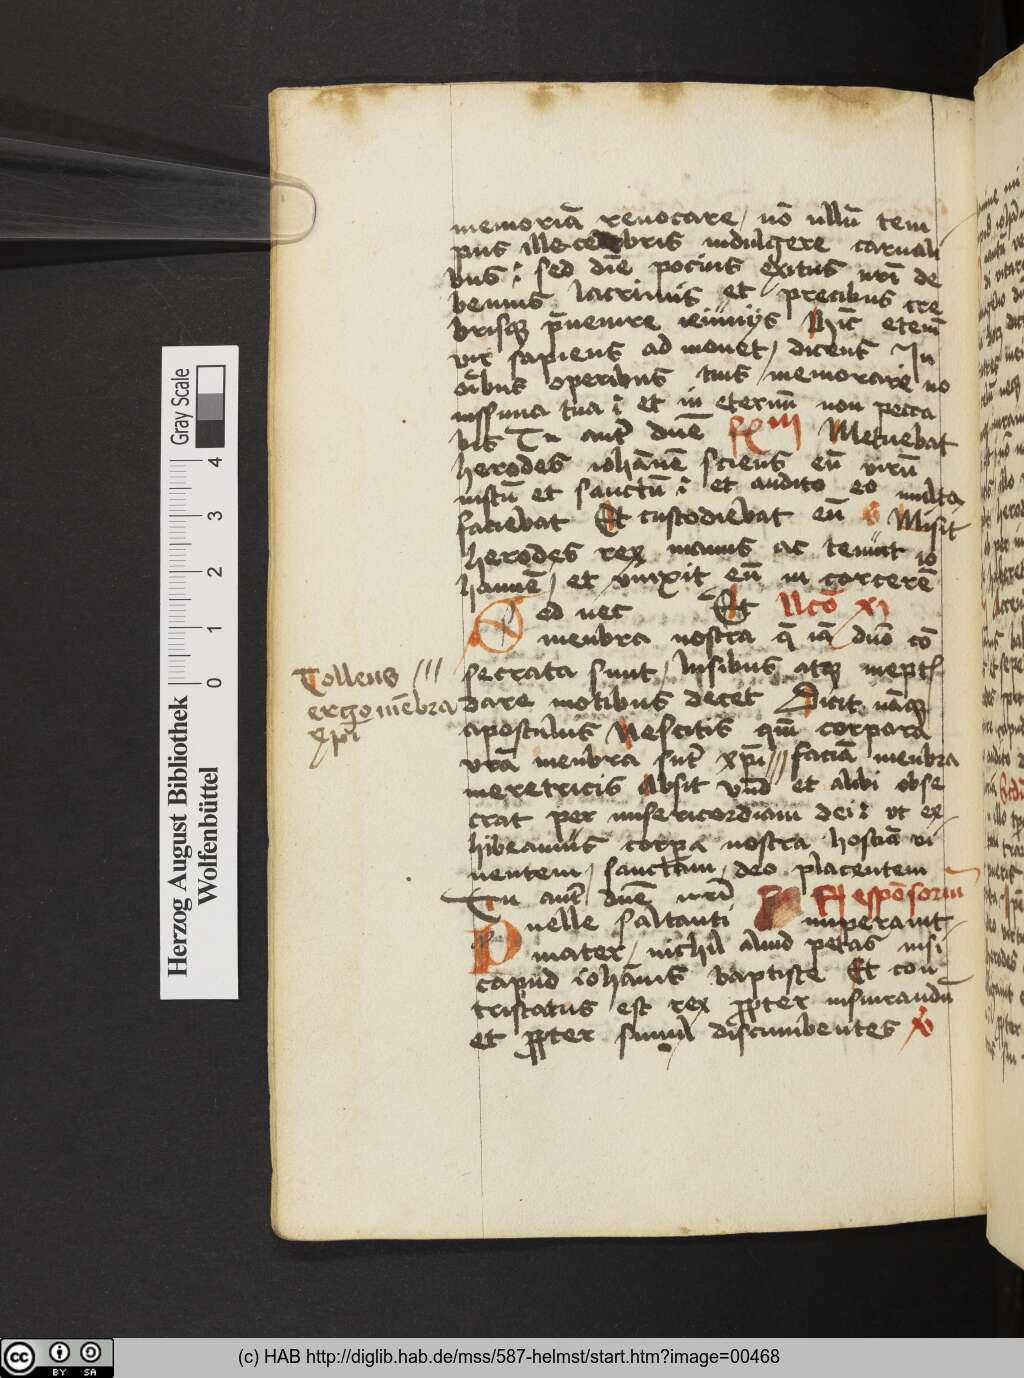 memoriā reuocare / nō ullū tem
pus illecebris indulgere carnali
bus : sed diē pocius exitus nrī de
bemus lacrimis et precibus cre
brisq̨ p̄uenire ieiuniys Hīc etem̄
vir sapiens ad monet / dicens In
oībus operibus tuis memorare no
uissima tua : et in eternū non pecca
bis Tu aut̄ dn̄e Metuebat
herodes iohānē sciens eū virū
iustū et sanctū : et audito eo multa
faciebat Et custodiebat eū Misit
herodes rex manus ac tenuit io
hannē / et vinxit eū in carcerē
Sed nec Et Lc̄o xj
menbra nostra q̄ iā dn̄o cō
secrata sunt / lusibus atq̨ inept̄
Tollens ///
ergo mēbra
xp̄i
dare motibus decet Dicit nāq̨
apostulus Nescitis qm̄ corpora
vrā menbra sūt xp̄i /// faciā menbra
meretricis Absit vnd̄ et alibi obse
crat per misericordiam dei : vt ex
hibeamus corpa nostra hostiā vi
uentem / sanctam / deo placentem
Tu aut̄ dn̄e nrī Respōsoriū
Puelle saltanti imperauit
mater / nichil aliud petas nisi
capud iohānis baptiste Et con
tristatus est rex ꝓpter iusiurandū
et ꝓpter simul discumbentes
Gray Scale
0 1 2 3 4
Herzog August Bibliothek
Wolfenbüttel
cc BY SA
(c) HAB http://diglib.hab.de/mss/587-helmst/start.htm?image=00468